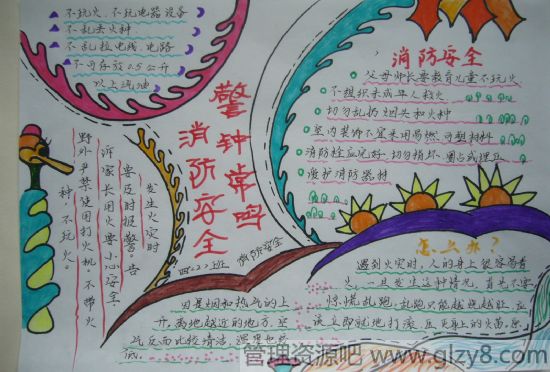 不玩火、不玩电器设备
不乱丢火种
不乱拉电线、电路
不可存放0.5公斤
以上汽油
警钟常鸣
消防安全
消防安全
父母师长要教育儿童不玩火
不组织未成年人救火
切勿乱扔烟头和火种
室内装饰不宜采用易燃可塑材料
消防栓应完好,切勿损坏、圈占或埋压
爱护消防器材
发生火灾时
要及时报警。告
诉家长用火要小心安全,
野外严禁使用打火机,不带火
种,不玩火。
四(2)班
消防安全
怎么办?
遇到火灾时,人的身上很容易着
火,一旦发生这种情况,首先不要
惊慌乱跑,乱跑只能越烧越旺,应
该立即就地打滚,压灭身上的火苗。
因是烟和热气的上
升,离地越近的地方,空
气反而比较清洁,温度也较
低。
管理资源吧 www.glzy8.com